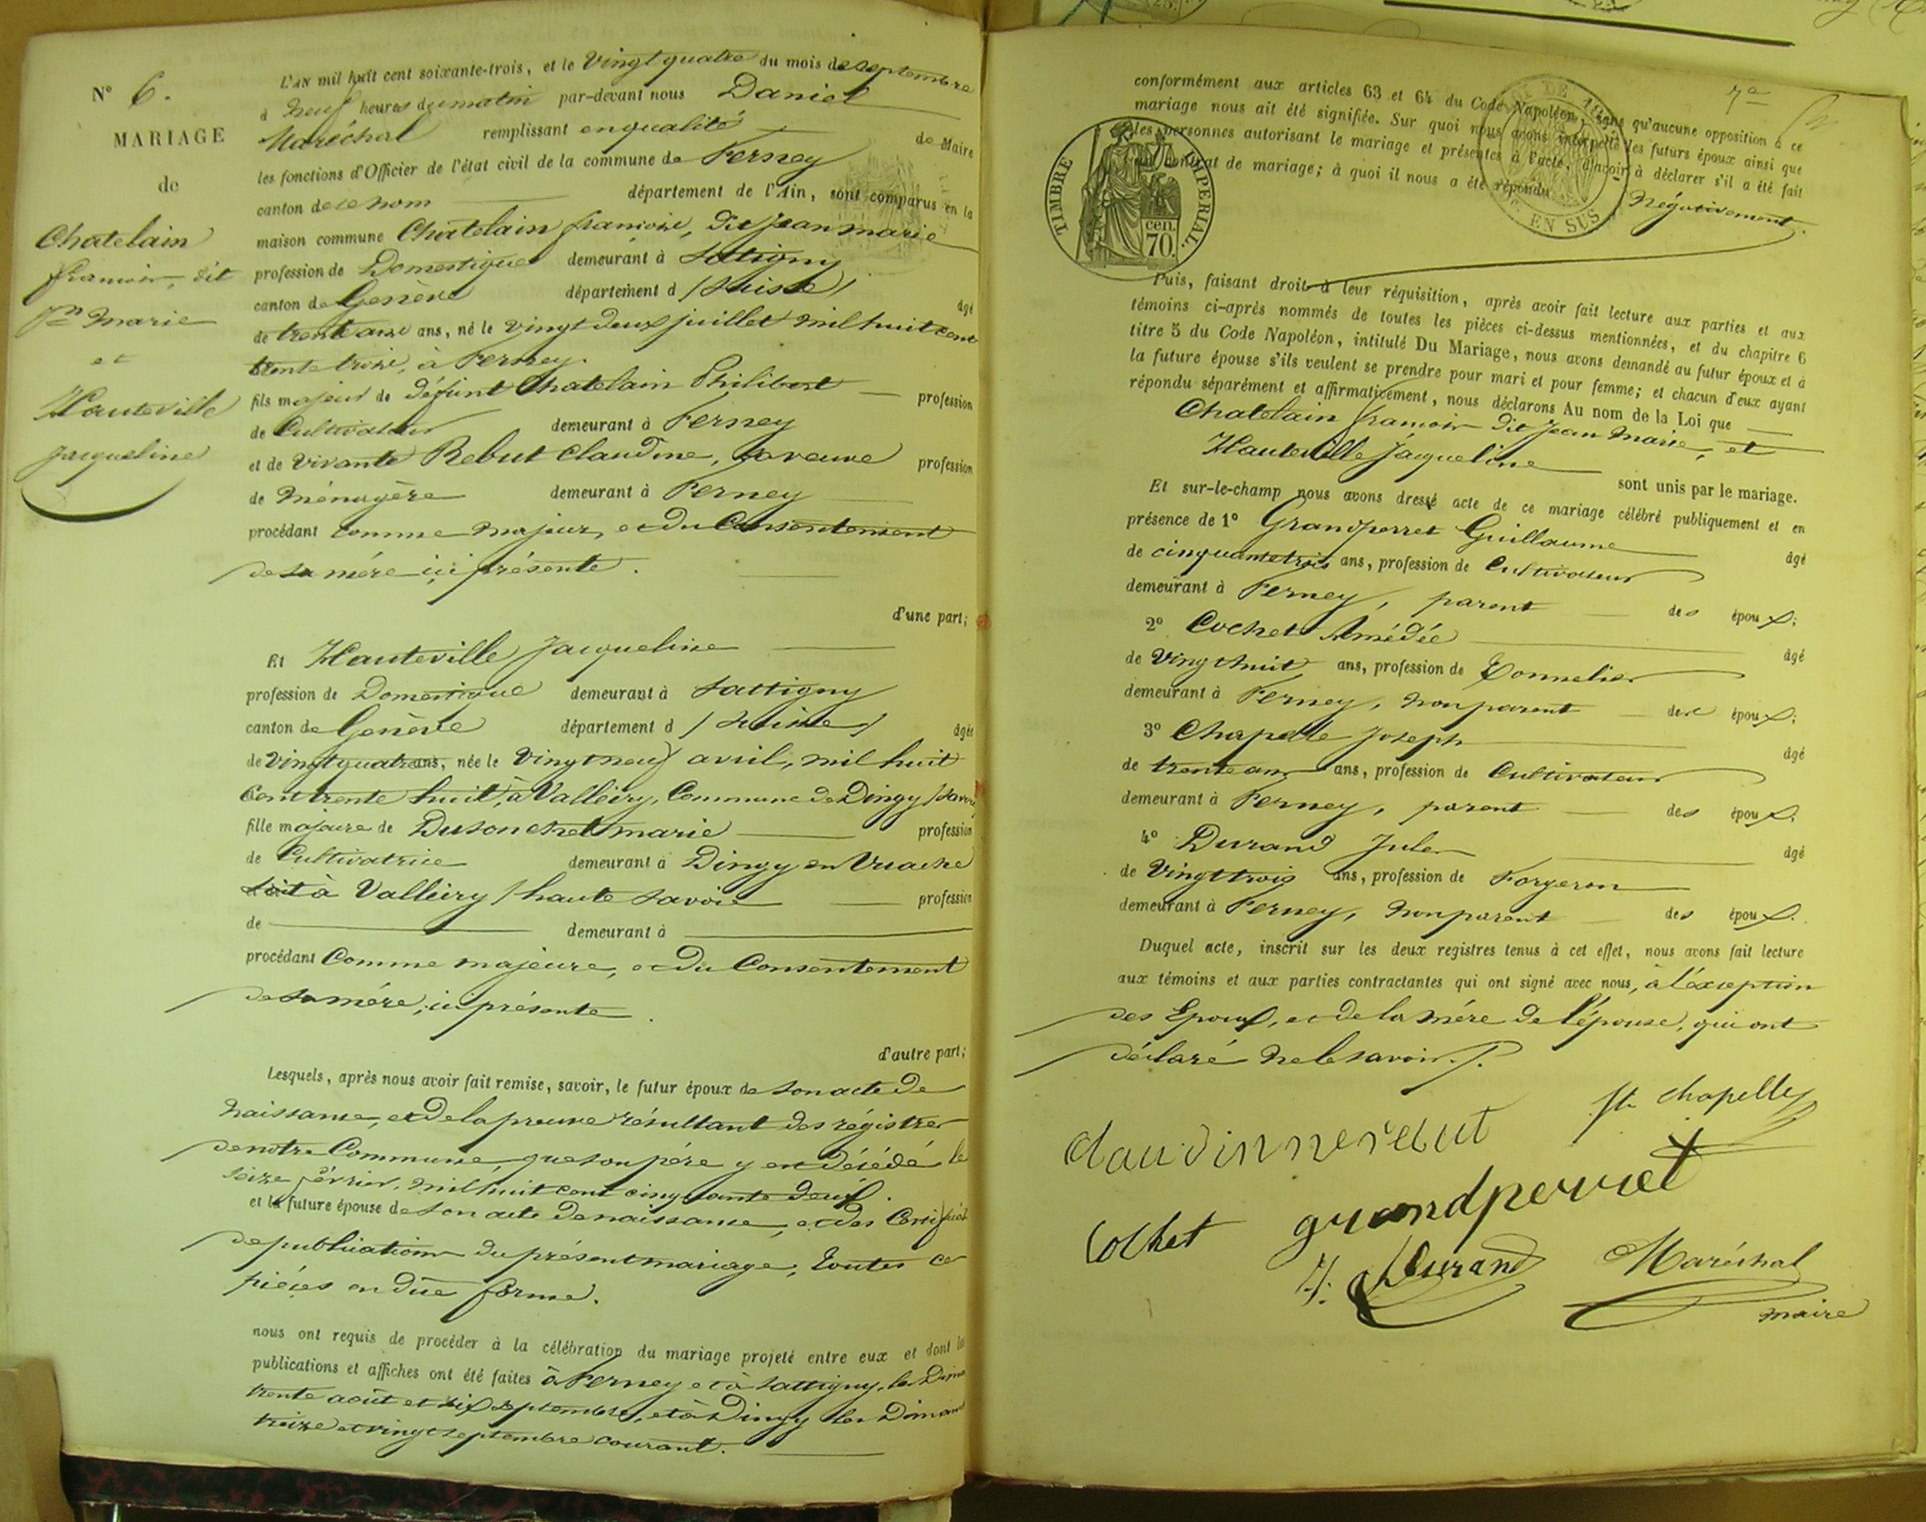 N° 6.
MARIAGE
de
Chatelain
françois, dit
Jn marie
et
Hauteville
Jacqueline
L'AN mil huit cent soixante-trois, et le Vingt quatre du mois de septembre
à Neuf heures du matin par-devant nous Daniel
Maréchal remplissant en qualité de Maire
les fonctions d'Officier de l'état civil de la commune de Ferney
canton de ce nom département de l'Ain, sont comparus en la
maison commune Chatelain françois, dit Jean marie
profession de Domestique demeurant à Satigny
canton de Genève département d (Suisse) âgé
de trente ans, né le vingt deux juillet mil huit cent
trente trois, à Ferney.
fils majeur de défunt Chatelain Philibert profession
de Cultivateur demeurant à Ferney
et de vivante Rebut Claudine, sa veuve profession
de Ménagère demeurant à Ferney
procédant comme majeur, et du Consentement
de sa mére ici présente.
d'une part;
Et Hauteville Jacqueline
profession de Domestique demeurant à Sattigny
canton de Genève département d (Suisse) âgée
de vingt quatre ans, née le Vingt neuf avril, mil huit
cent trente huit, à Valleiry, Commune de Dingy (Savoie
fille majeure de Dusonchet marie profession
de Cultivatrice demeurant à Dingy en Vuache
soit à Valleiry (haute Savoie profession
de demeurant à
procédant Comme majeure, et du Consentement
de sa mére, ici présente.
d'autre part;
Lesquels, après nous avoir fait remise, savoir, le futur époux de son acte de
Naissance, et de la preuve résultant des régistres
de notre Commune, que son pére y en décédé le
seize février, mil huit cent cinquante deux.
et la future épouse de son acte de naissance, et des Certificats
de publications du présent mariage, toutes ces
piéces en düe forme.
nous ont requis de procéder à la célébration du mariage projeté entre eux et dont les
publications et affiches ont été faites à Ferney et à Sattigny, les Dima
trente août et six septembre, et à Dingy les Dimanc
treize et vingt septembre courant.
7e
conformément aux articles 63 et 64 du Code Napoléon, sans qu'aucune opposition à ce
mariage nous ait été signifiée. Sur quoi nous avons interpellé les futurs époux ainsi que
les personnes autorisant le mariage et présentes à l'acte, d'avoir à déclarer s'il a été fait
un contrat de mariage; à quoi il nous a été répondu Négativement.
TIMBRE IMPERIAL.
70 cen.
EN SUS
Puis, faisant droit à leur réquisition, après avoir fait lecture aux parties et aux
témoins ci-après nommés de toutes les pièces ci-dessus mentionnées, et du chapitre 6
titre 5 du Code Napoléon, intitulé Du Mariage, nous avons demandé au futur époux et à
la future épouse s'ils veulent se prendre pour mari et pour femme; et chacun d'eux ayant
répondu séparément et affirmativement, nous déclarons Au nom de la Loi que
Chatelain françois dit Jean Marie, et
Hauteville Jacqueline sont unis par le mariage.
Et sur-le-champ nous avons dressé acte de ce mariage célébré publiquement et en
présence de 1° Grandperret Guillaume âgé
de cinquante trois ans, profession de Cultivateur
demeurant à Ferney, parent des époux;
2° Cochet Amédée âgé
de Vingt huit ans, profession de Tonnelier
demeurant à Ferney, non parent des époux;
3° Chapelle Joseph âgé
de trente ans ans, profession de Cultivateur
demeurant à Ferney, parent des époux;
4° Durand Jules âgé
de Vingt trois ans, profession de Forgeron
demeurant à Ferney, non parent des époux.
Duquel acte, inscrit sur les deux registres tenus à cet effet, nous avons fait lecture
aux témoins et aux parties contractantes qui ont signé avec nous, à l'éxception
des Epoux, et de la mére de l'épouse, qui ont
déclaré ne le savoir.
claudinnerebut
chapelle
grandperret
Cochet
J. Durand
Maréchal
maire